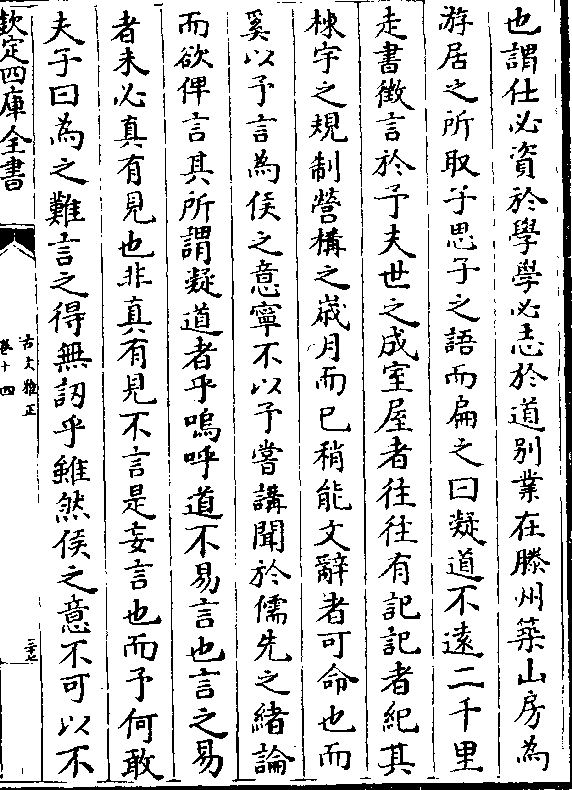 也謂仕必資於學學必志於道别業在滕州築山房為
游居之所取子思子之語而扁之曰凝道不遠二千里
走書徵言於予夫世之成室屋者往往有記記者紀其
棟宇之規制營構之歲月而已稍能文辭者可命也而
奚以予言為侯之意寧不以予嘗講聞於儒先之緒論
而欲俾言其所謂凝道者乎嗚呼道不易言也言之易
者未必真有見也非真有見不言是妄言也而予何敢
夫子曰為之難言之得無訒乎雖然侯之意不可以不
欽定四庫全書
古文雅正
卷十四
二十七